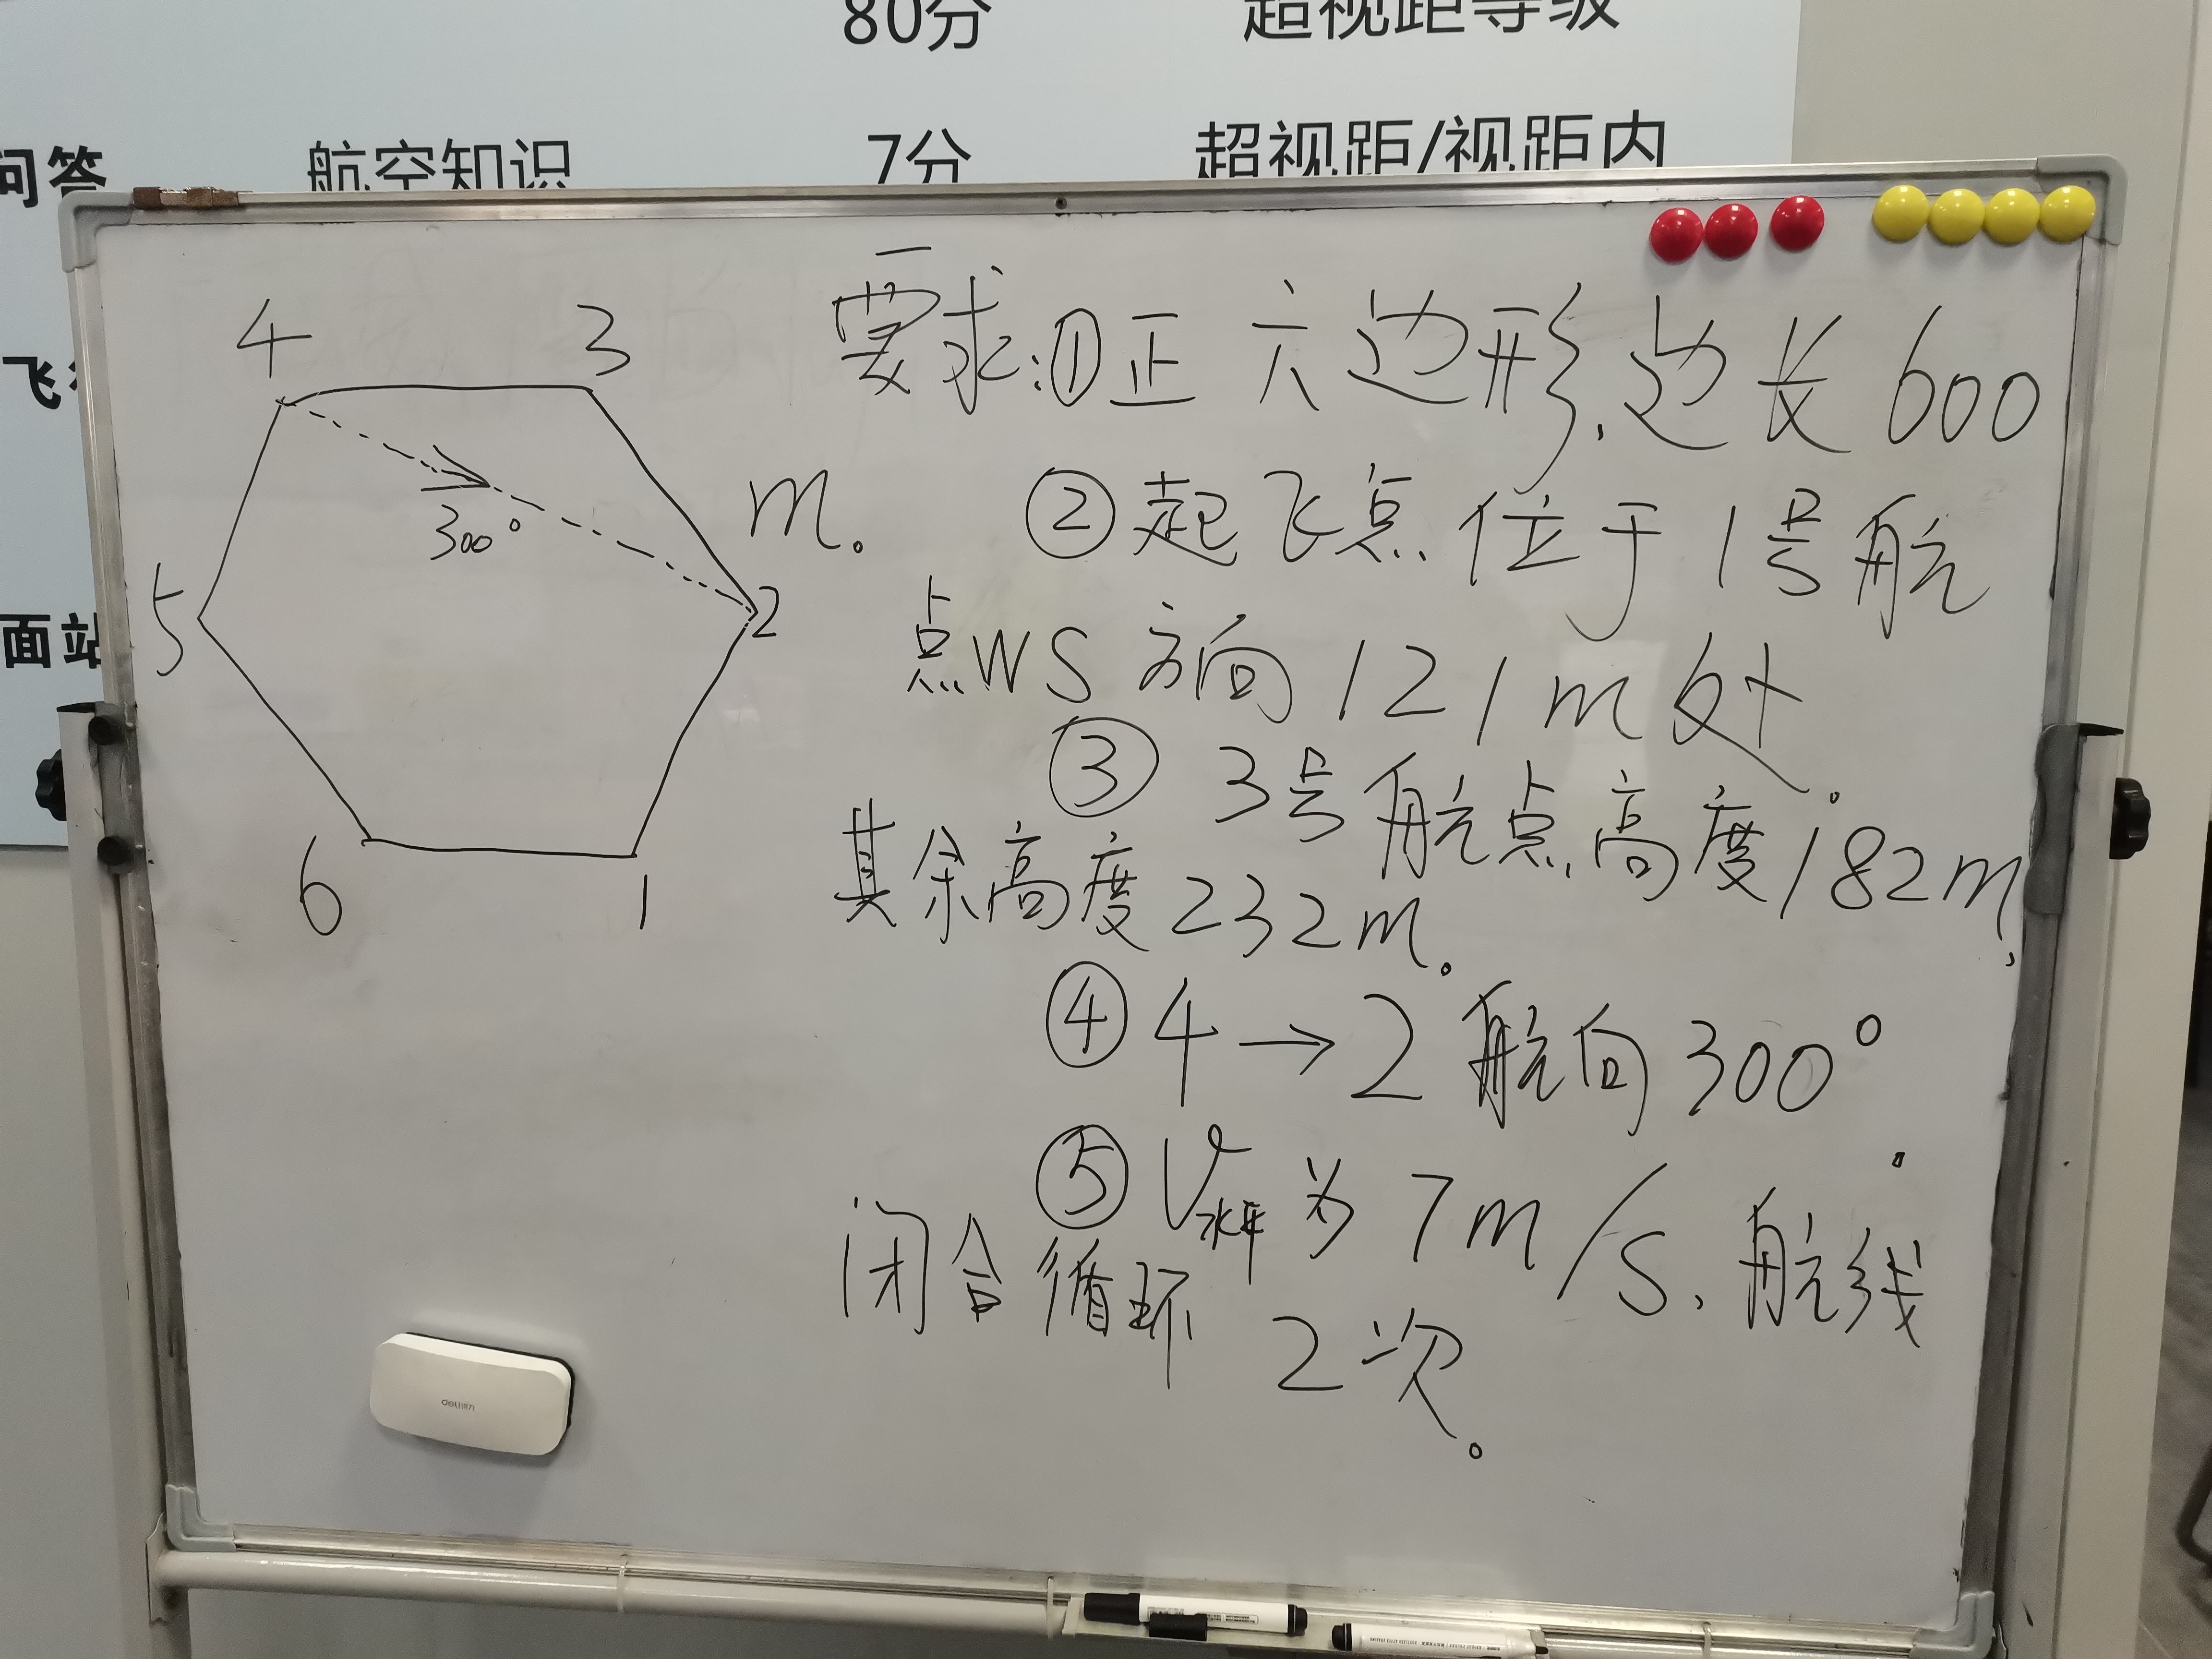 80分 超视距等级
问答 航空知识 7分 超视距/视距内
飞行
面站
4 3
5 300° 2
6 1
要求:①正六边形,边长600
m。 ②起飞点位于1号航
点WS方向121m处
③ 3号航点高度182m,
其余高度232m。
④ 4→2航向300°
⑤V水平为7m/s,航线
闭合循环 2次。
deli得力